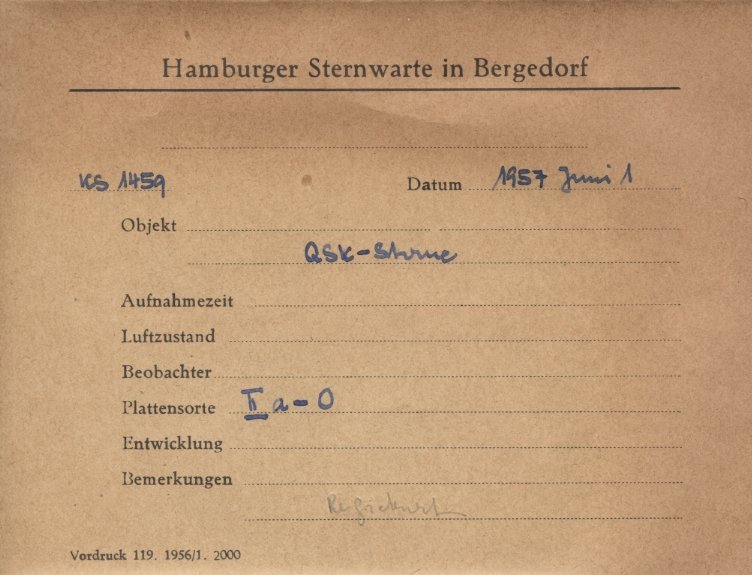 Hamburger Sternwarte in Bergedorf
KS 1459 Datum 1957 Juni 1
Objekt
QSK-Sterne
Aufnahmezeit
Luftzustand
Beobachter
Plattensorte II a-O
Entwicklung
Bemerkungen
Vordruck 119. 1956/1. 2000